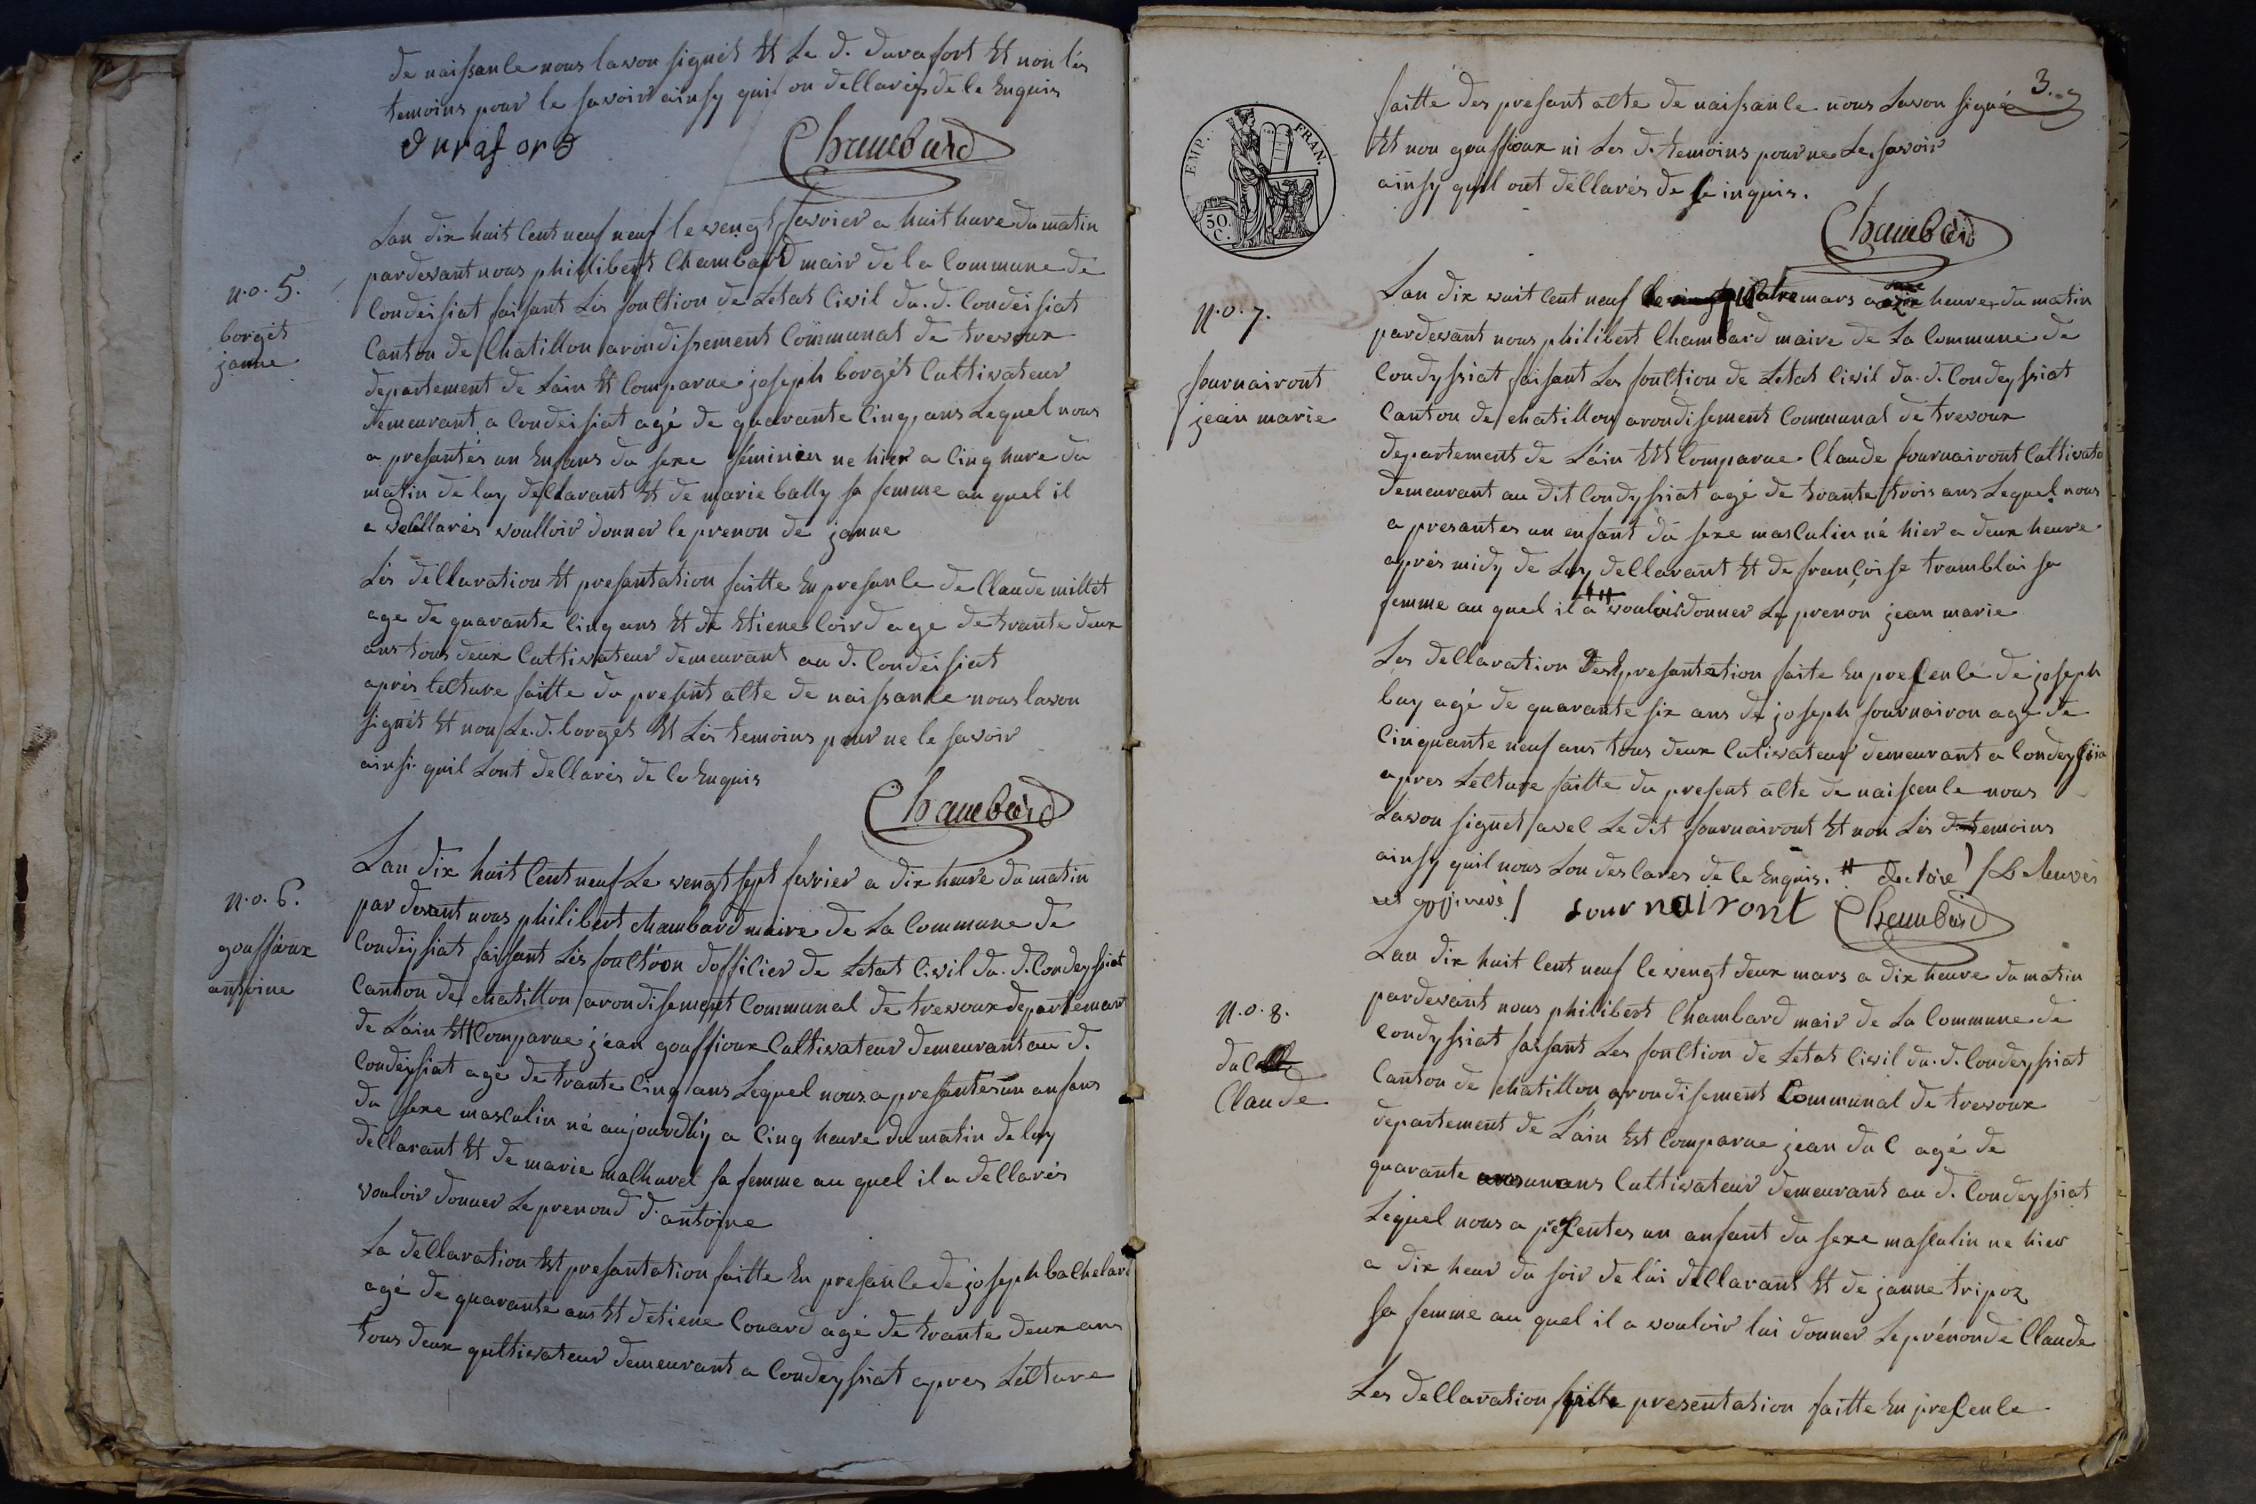 de naissance nous lavon signét Et Le d. durafort Et non lés
temoins pour le savoir ainsy quil on dellarés de le Enquis
duraford Chambard
Lan dix huit Cent neuf neuf le vengt fevrier a huit hure du matin
pardevant nous philibert Chambard mair de la Commune de
Condeisiat faisant Lés fonction de Letat Civil du. d. Condeisiat
Canton de Chatillon arondissement Communal de trevoux
n.o. 5.
borgét
janne
departement de Lain Et Comparue joseph borgét Cultivateur
demeurant a Condeisiat agé de quarante Cinq ans Lequel nous
a presantés un Enfans du sexe féminien ne hier a Cinq hure du
matin de luy dellarant Et de marie bally sa femme au quel il
a dellarés voulloir donner le prenon de janne
Lés dellaration Et presantation faitte En presance de Claude millet
age de quarante Cinq ans Et de Etiene Coird age de trante deux
ans tous deux Cultivateur demeurant au d. Condeisiat
aprés lecture faitte du present acte de naissance nous lavon
signét Et non Le. d. borgét Et Lés temoins pour ne le savoir
ainsi quil Lont dellarés de le Enquis
Chambard
Lan dix huit Cent neuf Le vengt sept fevrier a dix heure du matin
par devant nous philibert chambard maire de La Commune de
n.o. 6.
gouffioux
antoine
Condeyssiat faisant Lés fonction dofficier de Letat Civil du. d. Condeyssiat
Canton de chatillon arondisement Communal de trevoux departemant
de Lain Et Comparue jéan gouffioux Cultivateur demeurant au d.
Condeysiat agé de trante Cinq ans Lequel nous a presantés un anfans
du sexe masculin né aujourdhÿ a Cinq heure du matin de luy
dellarant Et de marie malhuvel sa femme au quel il a dellarés
vouloir donner Le prenond d'antoine
La dellaration Et presantation faitte En presance de joseph bachelard
agé de quarante ans Et détiene Couard agé de trante deux ans
tous deux qultivateur demeurant a Condeyssiat apres Lécture
3.
EMP. FRAN.
50. C.
faitte des presant acte de naissance nous Lavon signé
Et non gouffioux ni Les d. temoins pour ne Le savoir
ainsy quil ont déllarés de le inquis.
Chambard
n.o. 7.
fournairont
jean marie
Lan dix wuit Cent neuf Le quatre mars a onze heure du matin
pardevant nous philibert Chambard maire de La Commune de
Condyssiat faisant Les fonction de Letat Civil du. d. Condeyssiat
Canton de chatillon arondisement Communal de trevoux
departement de L'ain Et Comparue Claude fournairont Cultivato
demeurant au dit Condyssiat agé de trante trois ans Lequel nous
a presantes un enfant du sexe masculin né hier a deux heure
aprés midy de Luy dellarant Et de françoise tramblai sa
femme au quel il a vouloir donner Le prenon jean marie
Les dellaration des presantation faite En presence de joseph
buy agé de quarante six ans de joseph fournairon age de
Cinquante neuf ans tous deux Cutivateur demeurant a Condeyssia
apres Lécture faitte du present acte de naissence nous
Lavon signet avec Le dit fournairont Et non Lés d temoins
ainsy quil nous Lon deslares de le Enquis.
est approuvé fournairont Chambard
Lan dix huit Cent neuf le vengt deux mars a dix heure du matin
pardevant nous philibert Chambard mair de La Commune de
n.o. 8.
duC
Claude
condyssiat faisant Les fonction de Letat Civil du. d. Condeyssiat
Canton de chatillon arondisement Communal de trevoux
departement de L'ain Est Comparue jean duC agé de
quarante un ans Cultivateur demeurant au d. Condeyssiat
Léquel nous a presentes un anfant du sexe masculin ne hier
a dix heur du soir de lüi déllarant Et de janne tripoz
sa femme au quel il a vouloir lui donner Le prénon de Claude
Les dellaration faitte presentation faitte En presence